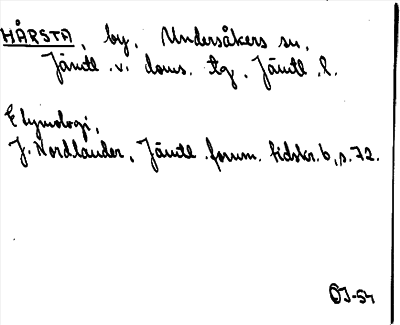 HÅRSTA, by, Undersåkers sn,
Jämtl. v. doms. tg, Jämtl. l.
Etymologi,
J. Nordlander, Jämtl. fornm. tidskr. 6, s. 72.
ÖJ-54